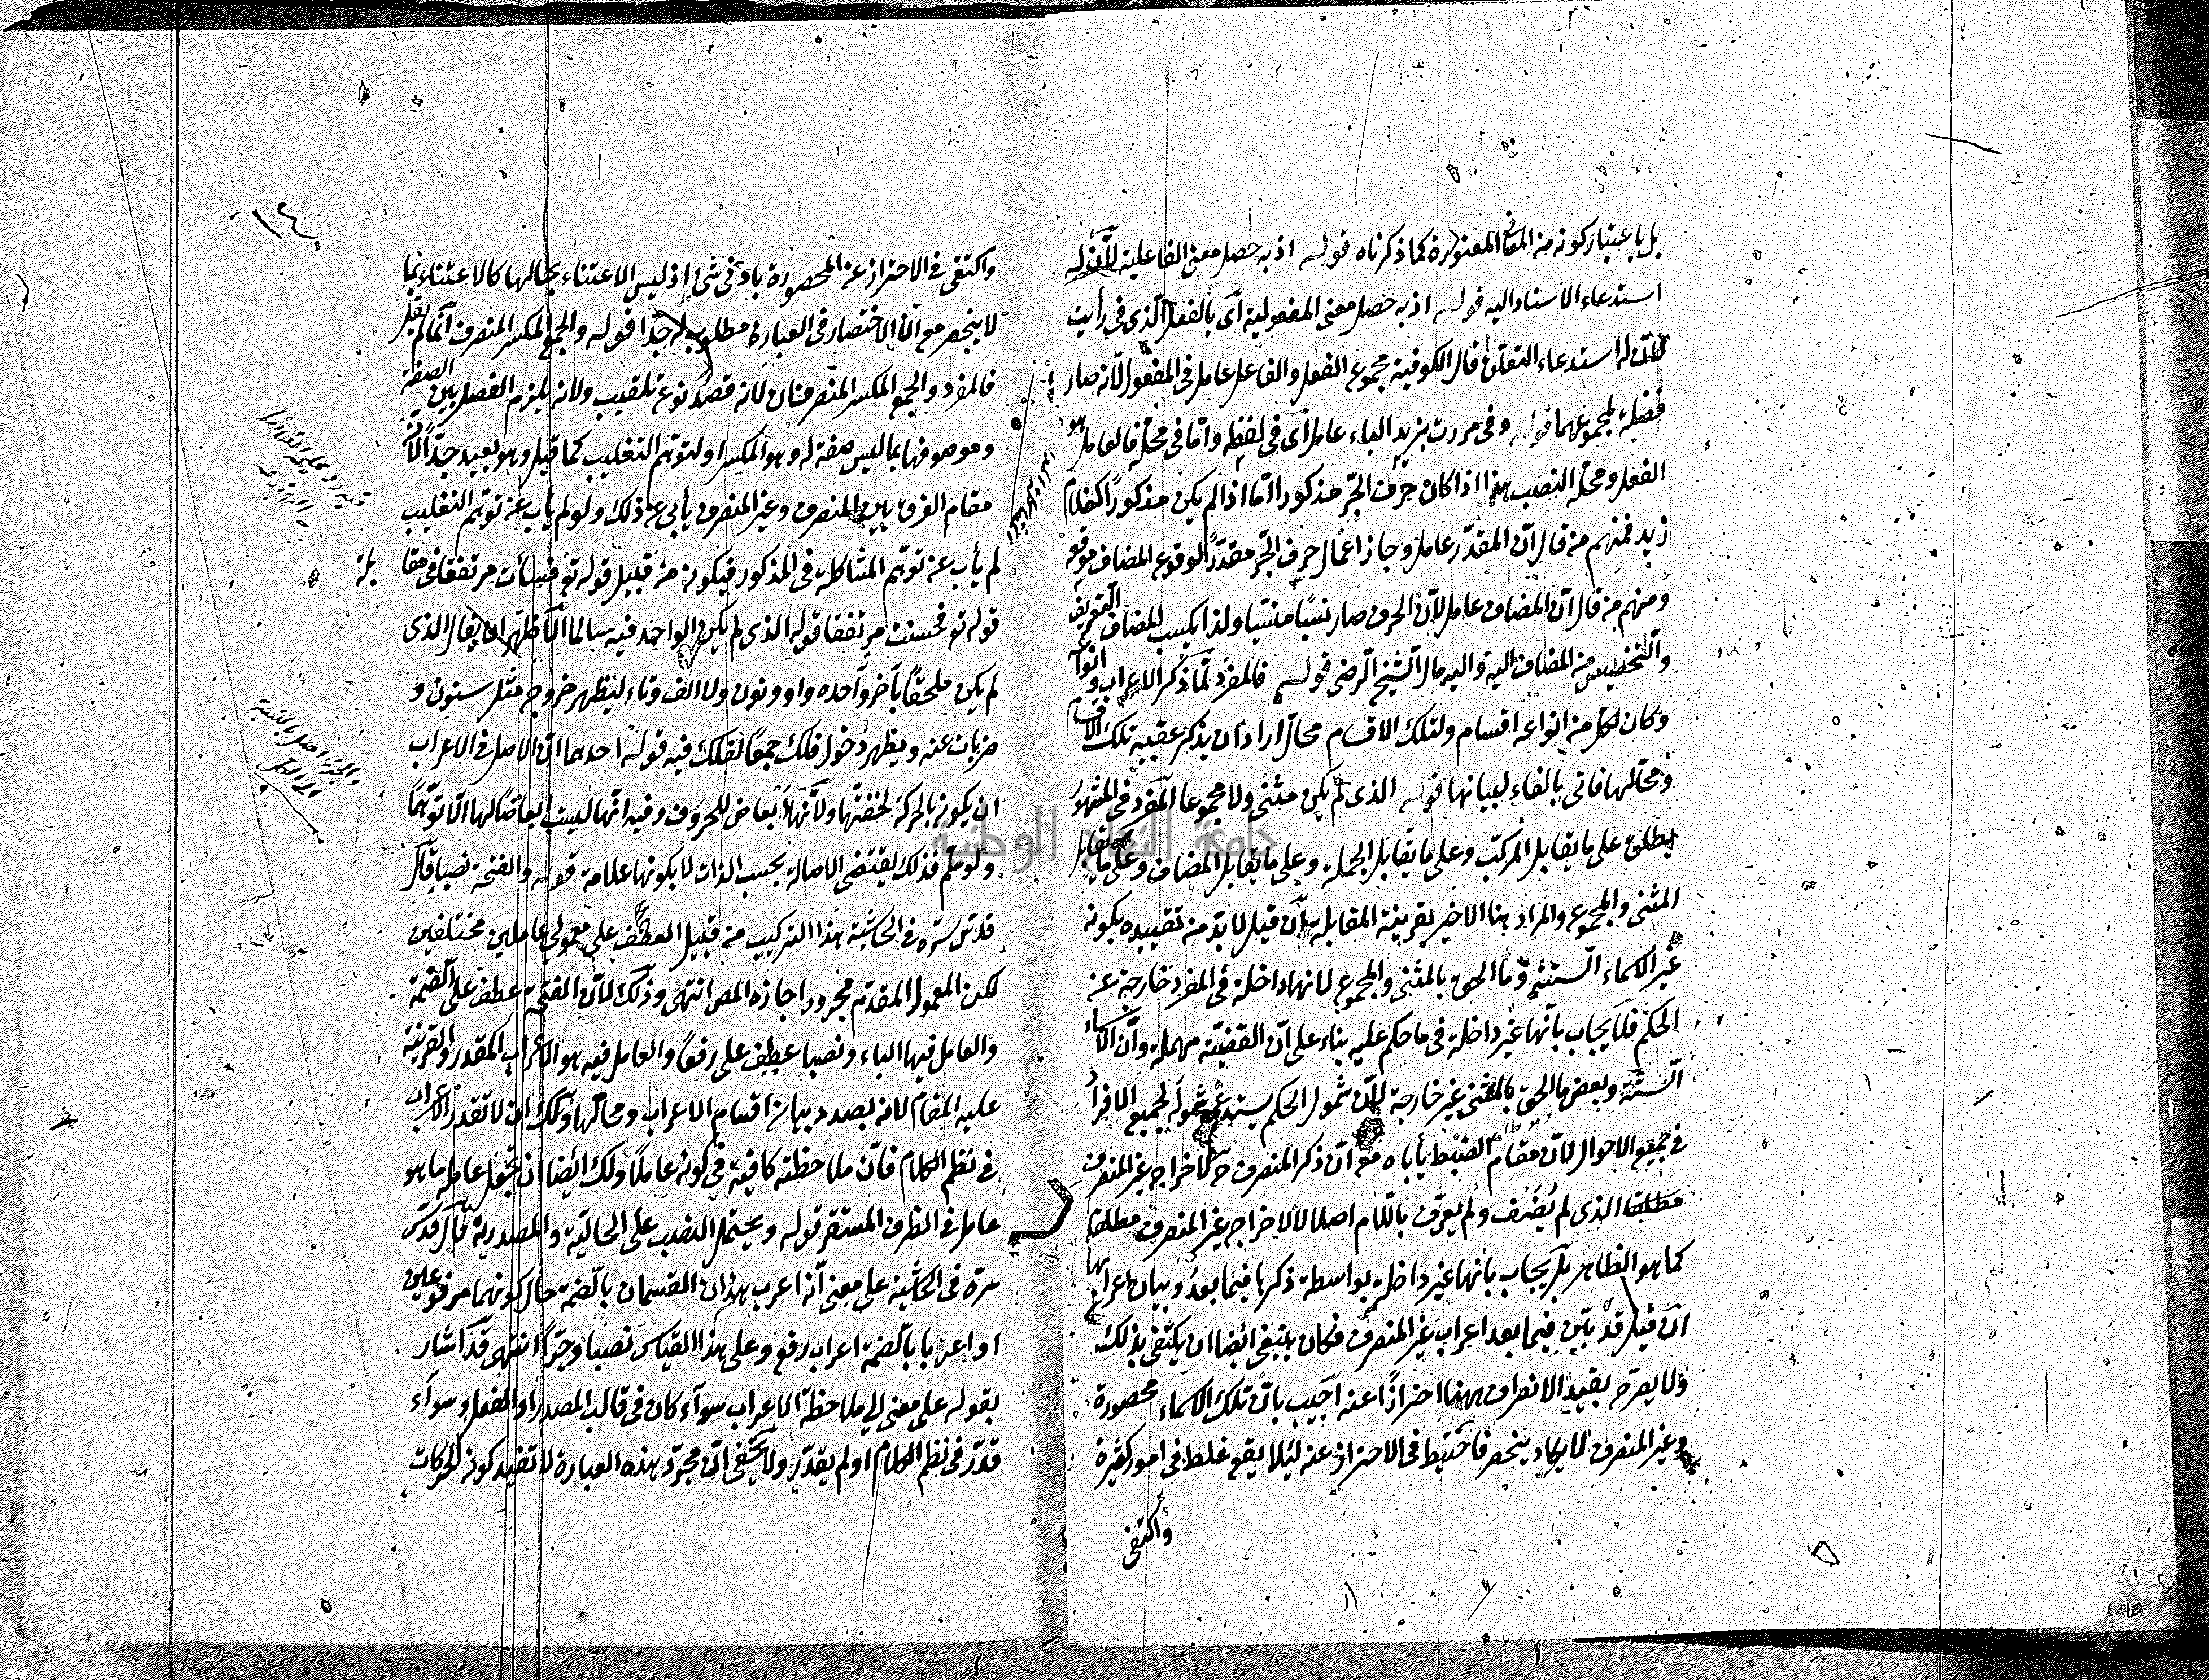 بل باعتبار كونه من المعاني المعتورة كما ذكرناه قوله اذ به حصل معنى الفاعلية لأن له
استدعاء الاسناد اليه قوله اذ به حصل معنى المفعولية أى بالفعل الّذى فى رأيت
لأن له استدعاء التعلق قال الكوفية مجموع الفعل والفاعل عامل فى المفعول لأنه صار
فضلة لمجموعهما قوله وفى مررت بزيد الباء عامل أى فى لفظه واما فى محلّه فالعامل هو
الفعل ومحله النصب هذا اذا كان حرف الجّر مذكورا اما اذا لم يكن مذكورًا كغلام
زيد فمنهم من قال أنّ المقدّر عامل وجاز اعمال حرف الجّر مقدّرًا لوقوع المضاف موقعه
ومنهم من قال انّ المضاف عامل لأنّ الحرف صار نسيًا منسيًا ولذا يكسب المضاف التعريف
والتخصيص من المضاف اليه واليه مال الشيخ الرضى قوله فالمفرد لمّا ذكر الاعراب وانواعه
وكان لكل من انواعه اقسام ولتلك الاقسام محالّ اراد ان يذكر عقيبه تلك الاقسام
ومحالها فاتى بالفاء لبيانها قوله الذى لم يكن مثنى ولا مجموعا المفرد فى المشهور
يطلق على ما يقابل المركب وعلى ما يقابل الجملة وعلى ما يقابل المضاف وعلى ما يقابل
المثنى والمجموع والمراد هنا الاخير بقرينة المقابلة فأن قيل لا بدّ منه تقييده بكونه
غير الاسماء الستة وما الحق بالمثنى والمجموع لانها داخلة فى المفرد خارجة عنه
الحكم فلا يجاب بأنها غير داخلة فى ما حكم عليه بناء على انّ القضيّة مهملة وأن الاسماء
الستة وبعض ما الحق بالمثنى غير خارجة لأنّ شمول الحكم يستدعى شموله لجميع الافراد
فى جميع الاحوال لأن مقام الضبط يأباه مع انّ ذكر المنصرف ح لاخراج غير المنصرف
مطلقا الذى لم يُضَف ولم يعرّف باللّام اصلا لا لاخراج غير المنصرف مطلقا
كما هو الظاهر بل يجاب بأنها غير داخلة بواسطة ذكرها فيما بعد وبيان اعرابها
ان قيل قد بيّن فيما بعد اعراب غير المنصرف فكان ينبغى ايضا ان يكتفى بذلك
ولا يصرّح بقيد الانصراف ههنا احترازًا عنه اجيب بأنّ تلك الاسماء محصورة
وغير المنصرف لا يكاد ينحصر فاحتيط فى الاحتراز عنه لئلا يقع غلط فى امور كثيرة
واكتفى
واكتفى فى الاحتراز عن المحصورة بادنى شئ اذ ليس الاعتناء بحالها كالاعتناء بما
لا ينحصر مع انّ الاختصار فى العبارة مطلوب له جدّا قوله والجمع المكسر المنصرف انما لم يقل
فالمفرد والجمع المكسر المنصرفان لانه قصد نوع تلقيب ولانه يلزم الفصل بين الصفة
وموصوفها بما ليس صفة له وهو المكسر او لتوهّم التغليب كما قيل وهو بعيد جدّا لأنّ
مقام الفرق بين المنصرف وغير المنصرف يأبى عن ذلك ولو لم يأب عن توهّم التغليب
لم يأب عن توهّم المشاكلة فى المذكور فيكون من قبيل قوله تع وساءت مرتفقا فى مقابلة
قوله تع حسنت مرتفقا قوله الذى لم يكن الواحد فيه سالما الأظهر ان يقال الذى
لم يكن ملحقًا بآخر واحده واو ونون ولا الف وتاء ليظهر خروج مثل سنون و
ضربات عنه ويظهر دخول فلك جمعًا لفلك فيه قوله احدهما انّ الاصل فى الاعراب
ان يكون بالحركة لخفتها ولأنها أبعاض للحروف وفيه انّها ليست ابعاضا لها الا توهّمًا
ولو سلم فذلك يقتضى الاصالة بحسب الذات لا بكونها علامة قوله والفتحة نصبا قال
قدّس سرّه فى الحاشية هذا التركيب من قبيل العطف على معمولى عاملين مختلفين
لكن المعمول المقدم مجرور اجازه المص انتهى وذلك لأنّ الفتحة عطف على الضمة
والعامل فيها الباء ونصبا عطف على رفعًا والعامل فيه هو الاعراب المقدر والقرينة
عليه المقام لانه بصدد بيان اقسام الاعراب ومحالّها ولك ان لا تقدر الاعراب
فى نظم الكلام فأنّ ملاحظته كافية فى كونه عاملًا ولك ايضا ان تجعل عامله ما هو
عامل فى الظرف المستقر قوله ويحتمل النصب على الحالية والمصدرية قال قدّس
سرّه فى الحاشية على معنى انّه اعرب هذان القسمان بالضمة حال كونهما مرفوعين
او اعربا بالضمة اعراب رفع وعلى هذا القياس نصبا وجرّا انتهى قد اشار
بقوله على معنى الى ملاحظة الاعراب سواء كان فى قالب المصدر او الفعل وسواء
قدّر فى نظم الكلام او لم يقدّر ولا يخفى انّ مجرّد هذه العبارة لا تفيد كون الحركات